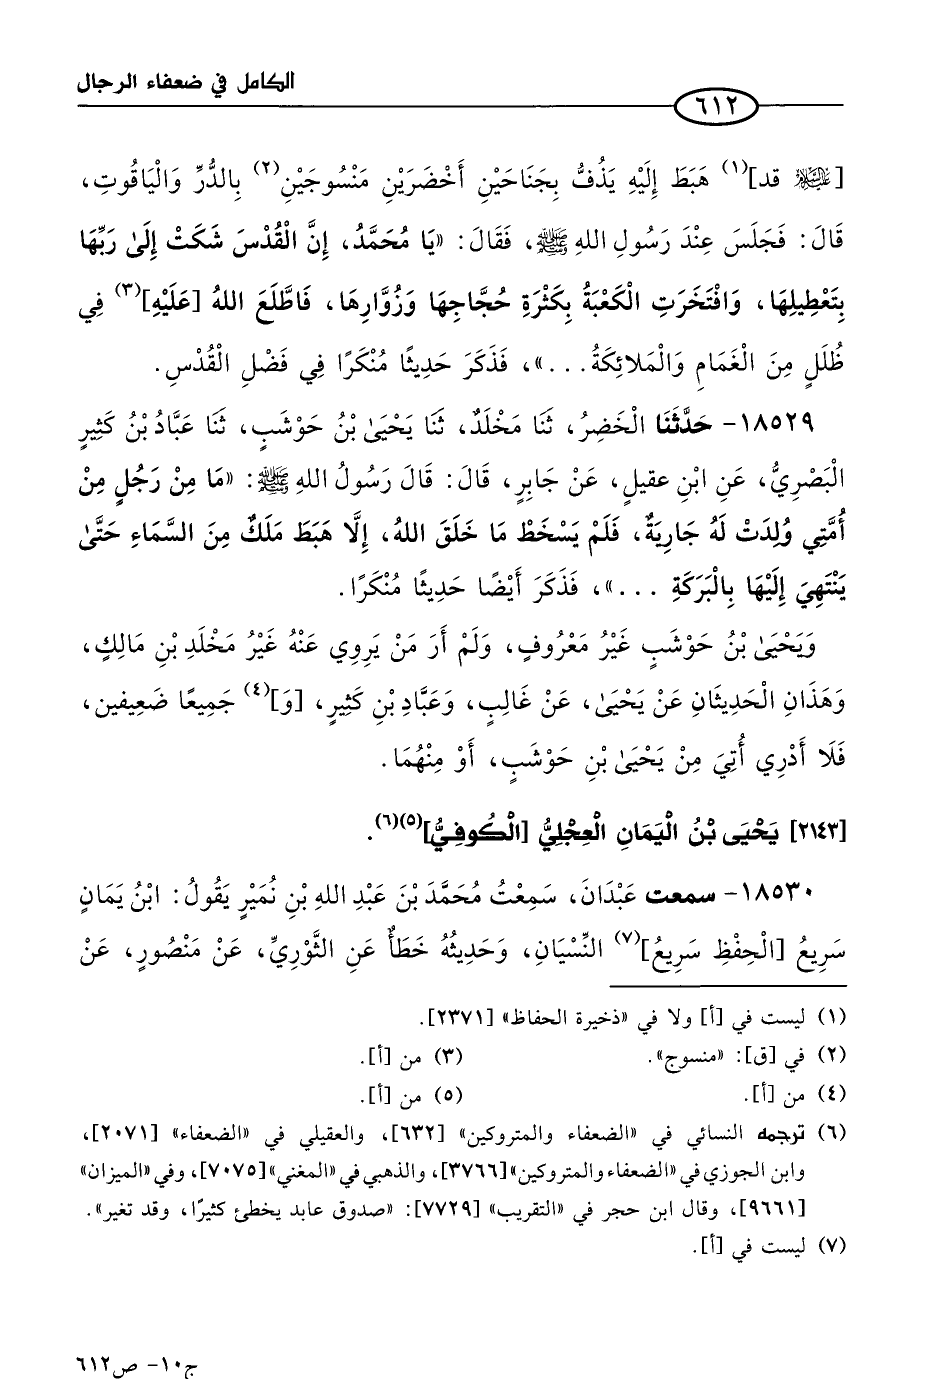 الكامل في ضعفاء الرجال
٦١٢
[عليه السلام قد](١) هَبَطَ إِلَيْهِ يَذُفُّ بِجَنَاحَيْنِ أَخْضَرَيْنِ مَنْسُوجَيْنِ(٢) بِالدُّرِّ وَالْيَاقُوتِ،
قَالَ: فَجَلَسَ عِنْدَ رَسُولِ اللهِ ﷺ، فَقَالَ: «يَا مُحَمَّدُ، إِنَّ الْقُدْسَ شَكَتْ إِلَىٰ رَبِّهَا
بِتَعْطِيلِهَا، وَافْتَخَرَتِ الْكَعْبَةُ بِكَثْرَةِ حُجَّاجِهَا وَزُوَّارِهَا، فَاطَّلَعَ اللهُ [عَلَيْهِ](٣) فِي
ظُلَلٍ مِنَ الْغَمَامِ وَالْمَلائِكَةُ...»، فَذَكَرَ حَدِيثًا مُنْكَرًا فِي فَضْلِ الْقُدْسِ.
١٨٥٢٩- حَدَّثَنَا الْخَضِرُ، ثَنَا مَخْلَدٌ، ثَنَا يَحْيَىٰ بْنُ حَوْشَبٍ، ثَنَا عَبَّادُ بْنُ كَثِيرٍ
الْبَصْرِيُّ، عَنِ ابْنِ عقيلٍ، عَنْ جَابِرٍ، قَالَ: قَالَ رَسُولُ اللهِ ﷺ: «مَا مِنْ رَجُلٍ مِنْ
أُمَّتِي وُلِدَتْ لَهُ جَارِيَةٌ، فَلَمْ يَسْخَطْ مَا خَلَقَ اللهُ، إِلَّا هَبَطَ مَلَكٌ مِنَ السَّمَاءِ حَتَّىٰ
يَنْتَهِيَ إِلَيْهَا بِالْبَرَكَةِ ...»، فَذَكَرَ أَيْضًا حَدِيثًا مُنْكَرًا.
وَيَحْيَىٰ بْنُ حَوْشَبٍ غَيْرُ مَعْرُوفٍ، وَلَمْ أَرَ مَنْ يَرِوِي عَنْهُ غَيْرُ مَخْلَدِ بْنِ مَالِكٍ،
وَهَذَانِ الْحَدِيثَانِ عَنْ يَحْيَىٰ، عَنْ غَالِبٍ، وَعَبَّادِ بْنِ كَثِيرٍ، [وَ](٤) جَمِيعًا ضَعِيفين،
فَلَا أَدْرِي أُتِيَ مِنْ يَحْيَىٰ بْنِ حَوْشَبٍ، أَوْ مِنْهُمَا.
[٢١٤٣] يَحْيَى بْنُ الْيَمَانِ الْعِجْلِيُّ [الْكُوفِيُّ](٥)(٦).
١٨٥٣٠- سمعت عَبْدَانَ، سَمِعْتُ مُحَمَّدَ بْنَ عَبْدِ اللهِ بْنِ نُمَيْرٍ يَقُولُ: ابْنُ يَمَانٍ
سَرِيعُ [الْحِفْظِ سَرِيعُ](٧) النِّسْيَانِ، وَحَدِيثُهُ خَطَأٌ عَنِ الثَّوْرِيِّ، عَنْ مَنْصُورٍ، عَنْ
(١) ليست في [أ] ولا في «ذخيرة الحفاظ» [٢٣٧١].
(٢) في [ق]: «منسوج». (٣) من [أ].
(٤) من [أ]. (٥) من [أ].
(٦) ترجمه النسائي في «الضعفاء والمتروكين» [٦٣٢]، والعقيلي في «الضعفاء» [٢٠٧١]،
وابن الجوزي في «الضعفاء والمتروكين» [٣٧٦٦]، والذهبي في «المغني» [٧٠٧٥]، وفي «الميزان»
[٩٦٦١]، وقال ابن حجر في «التقريب» [٧٧٢٩]: «صدوق عابد يخطئ كثيرًا، وقد تغير».
(٧) ليست في [أ].
ج١٠- ص٦١٢